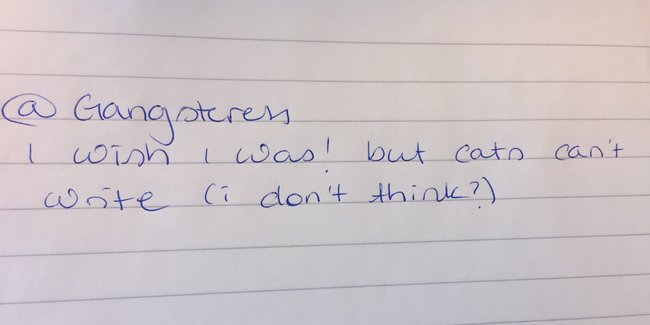 @ Gangsteress
I wish I was! but cats can't
write (i don't think?)